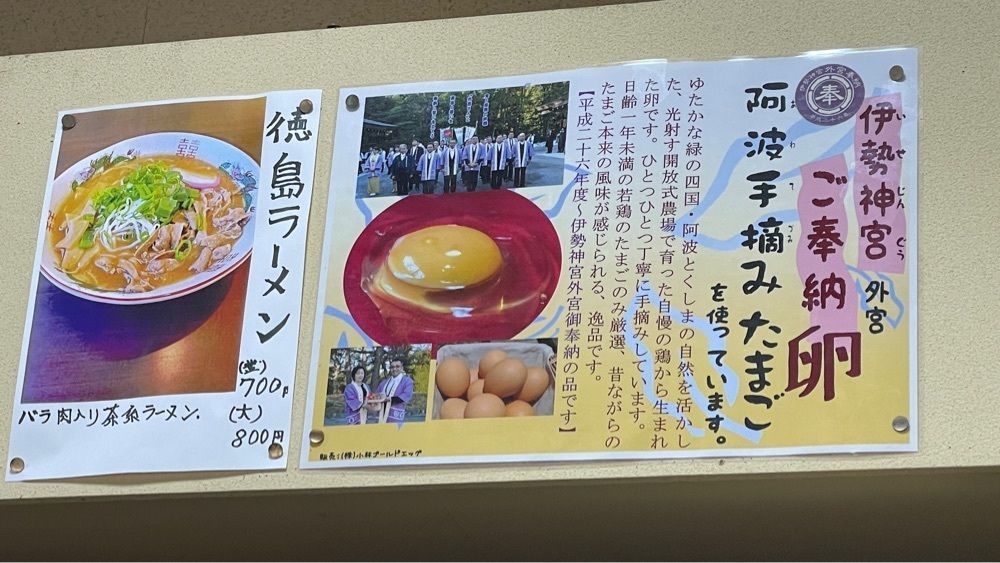 徳島ラーメン
(並)
700円
(大)
800円
バラ肉入り茶系ラーメン.
伊勢神宮外宮奉納
奉
平成二十六年
伊勢神宮 外宮
いせじんぐう
ご奉納卵
阿波手摘みたまご
あわてづみ
を使っています。
ゆたかな緑の四国・阿波とくしまの自然を活かし
た、光射す開放式農場で育った自慢の鶏から生まれ
た卵です。ひとつひとつ丁寧に手摘みしています。
日齢一年未満の若鶏のたまごのみ厳選、昔ながらの
たまご本来の風味が感じられる、逸品です。
【平成二十六年度~伊勢神宮外宮御奉納の品です】
販売:(株)小林ゴールドエッグ